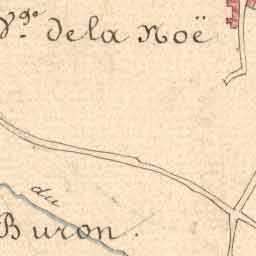 V.ge de la Noë
du
Buron.